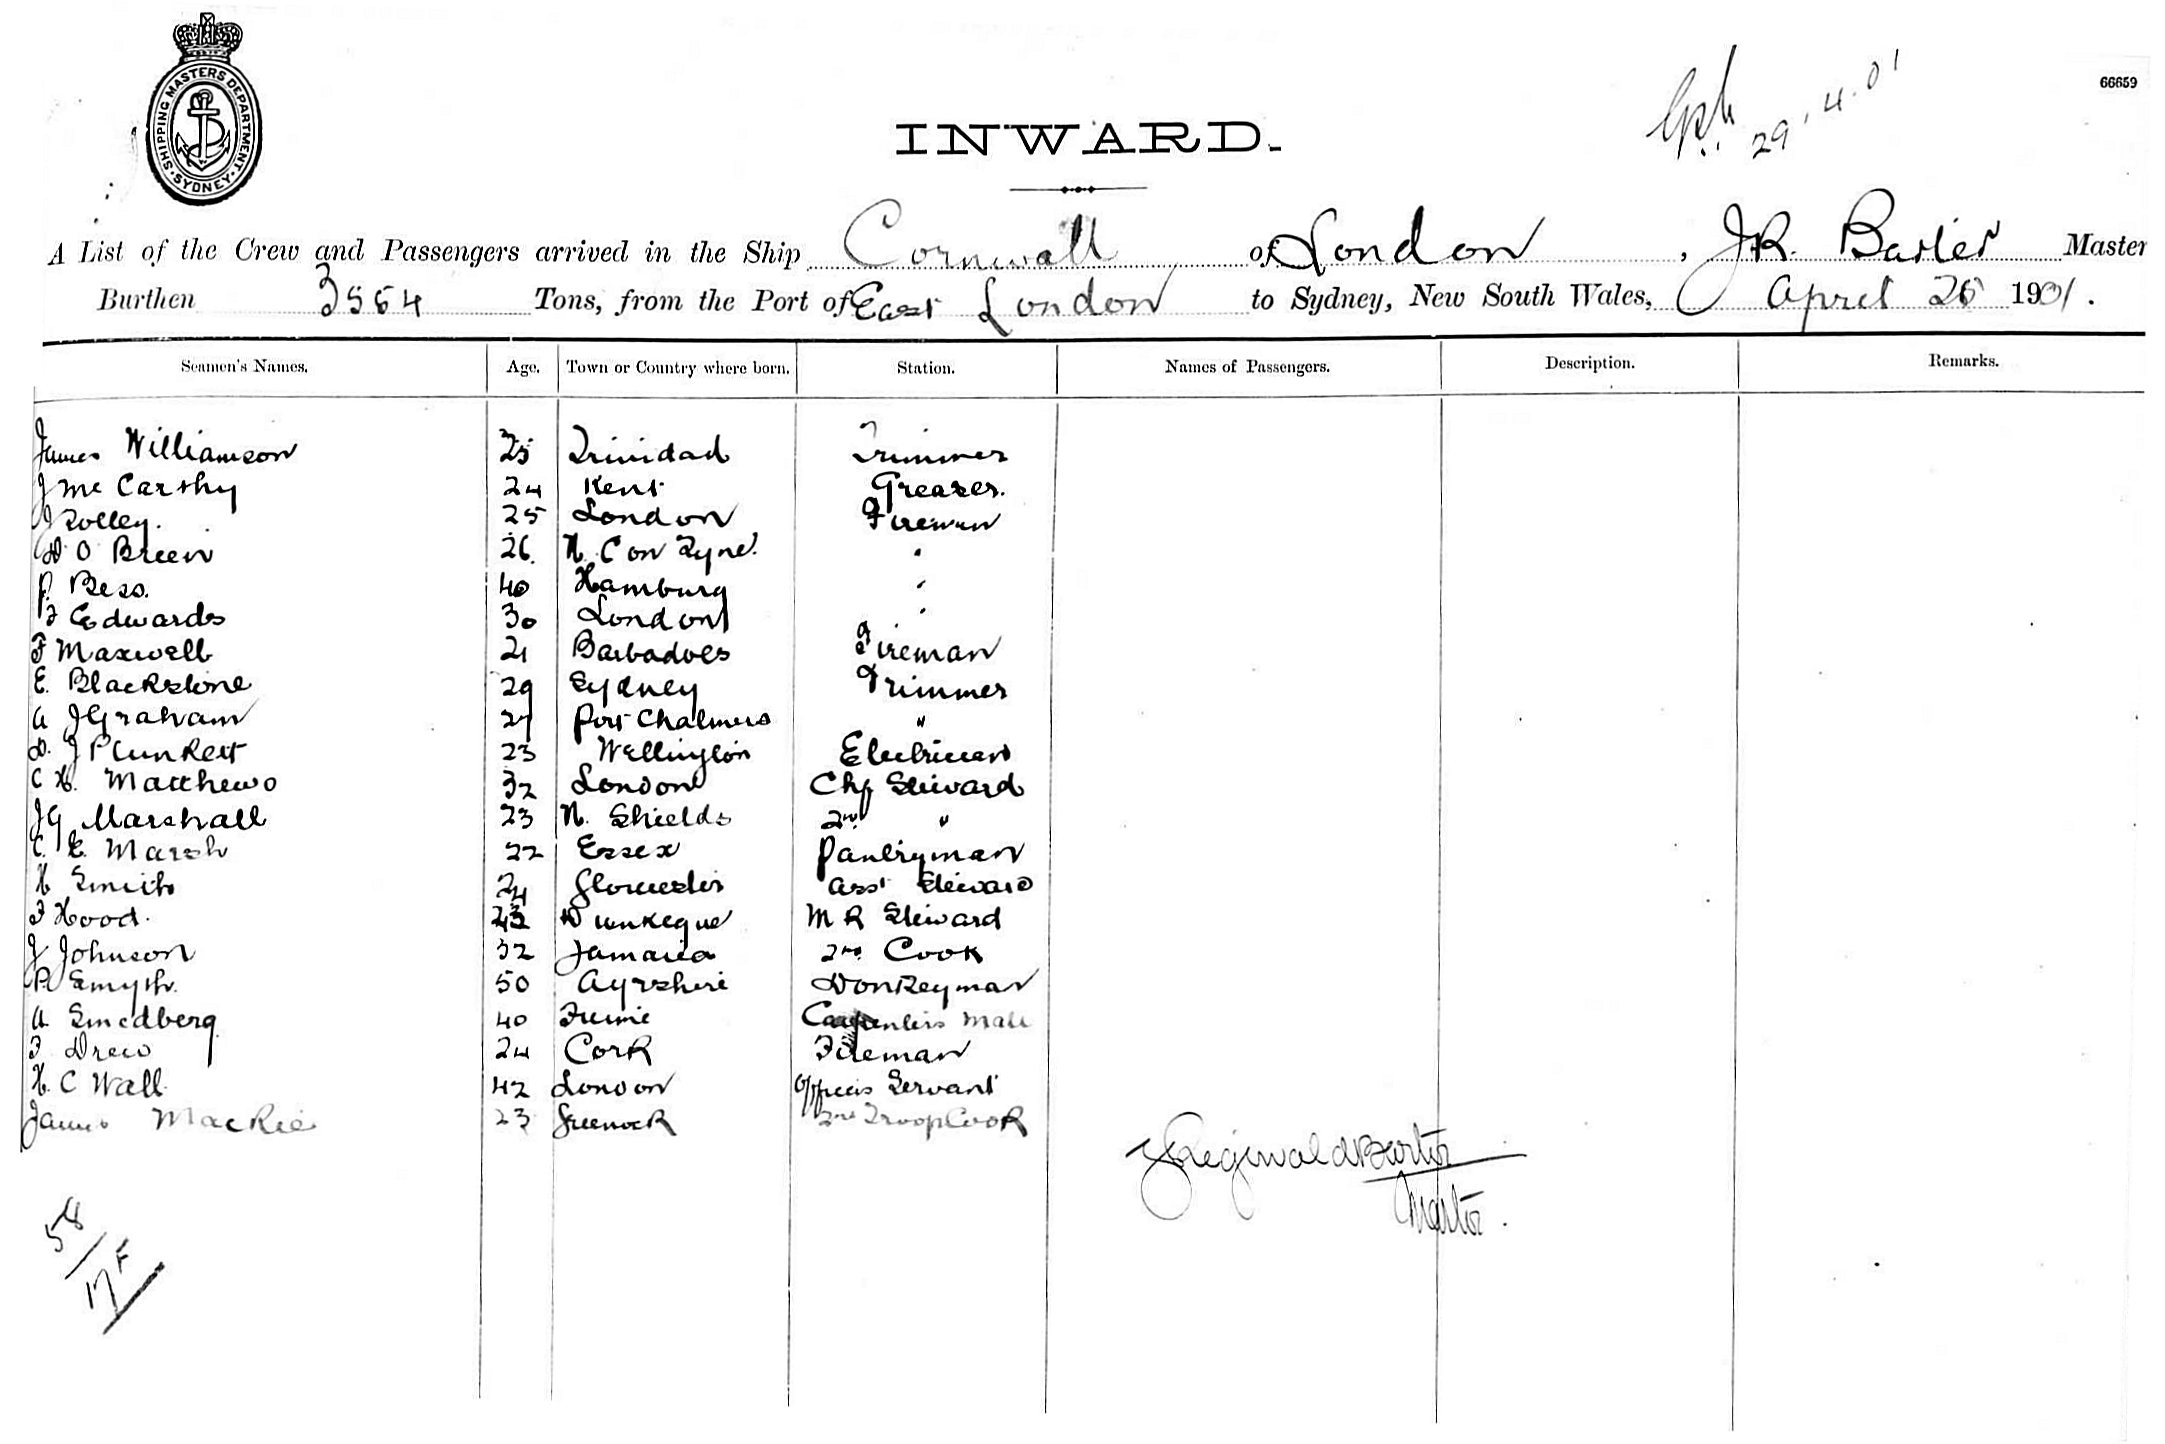 SHIPPING MASTERS DEPARTMENT · SYDNEY ·
66659
29.4.01
INWARD.
A List of the Crew and Passengers arrived in the Ship Cornwall of London, J.R. Barter Master
Burthen 3554 Tons, from the Port of East London to Sydney, New South Wales, April 26 1901.
Seamen's Names. Age. Town or Country where born. Station. Names of Passengers. Description. Remarks.
James Williamson 25 Trinidad Trimmer
J Mc Carthy 24 Kent Greaser.
J Rolley. 25 London Fireman
O Brien 26. N. C on Tyne. "
P. Bess. 40 Hamburg "
Edwards 30 London "
F Maxwell 21 Barbadoes Fireman
E. Blackstone 29 Sydney Trimmer
A J Graham 27 Port Chalmers "
D. J Plunkett 23 Wellington Electrician
C H. Matthews 32 London Chf Steward
J G Marshall 23 N. Shields 2nd "
C. E. Marsh 22 Essex Pantryman
H Smith 24 Gloucester Asst Steward
F Hood. Dunkeque M R Steward
J Johnson 32 Jamaica 2nd Cook
R Smyth. 50 Ayrshire Donkeyman
A Smedberg 40 Fiume Carpenters Mate
F Drew 24 Cork Fireman
H. C Wall 42 London Officers Servant
James Mackie 23 Greenock Troop Cook
J Reginald Barter
Master.
58
17 F